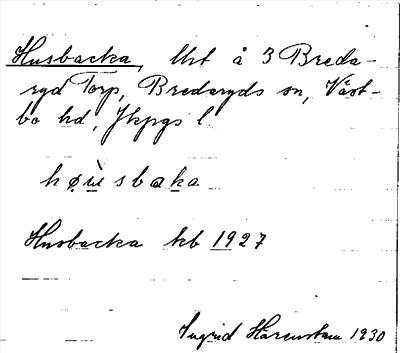 Husbacka, Utt å 3 Breda-
ryd Torp, Bredaryds sn, Väst-
bo hd, Jkpgs l.
høùsbaka
Husbacka kb 1927
Ingrid Hårenstam 1930